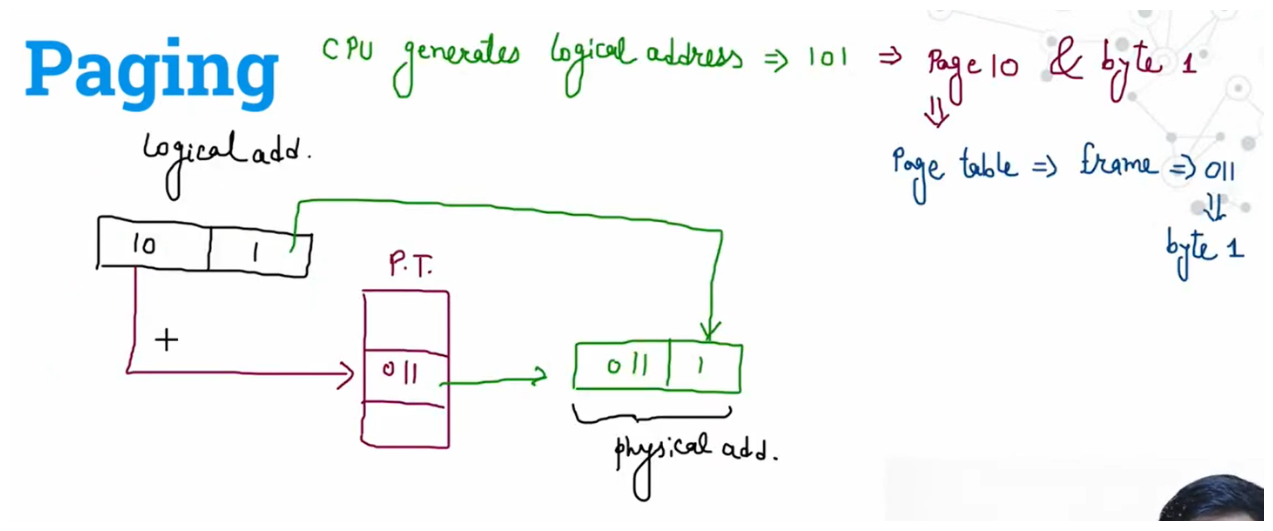 Paging
CPU generates logical address ⇒ 101 ⇒ Page 10 & byte 1
⇓
Page table ⇒ frame ⇒ 011
⇓
byte 1
Logical add.
10 1
P.T.
+
011
011 1
physical add.